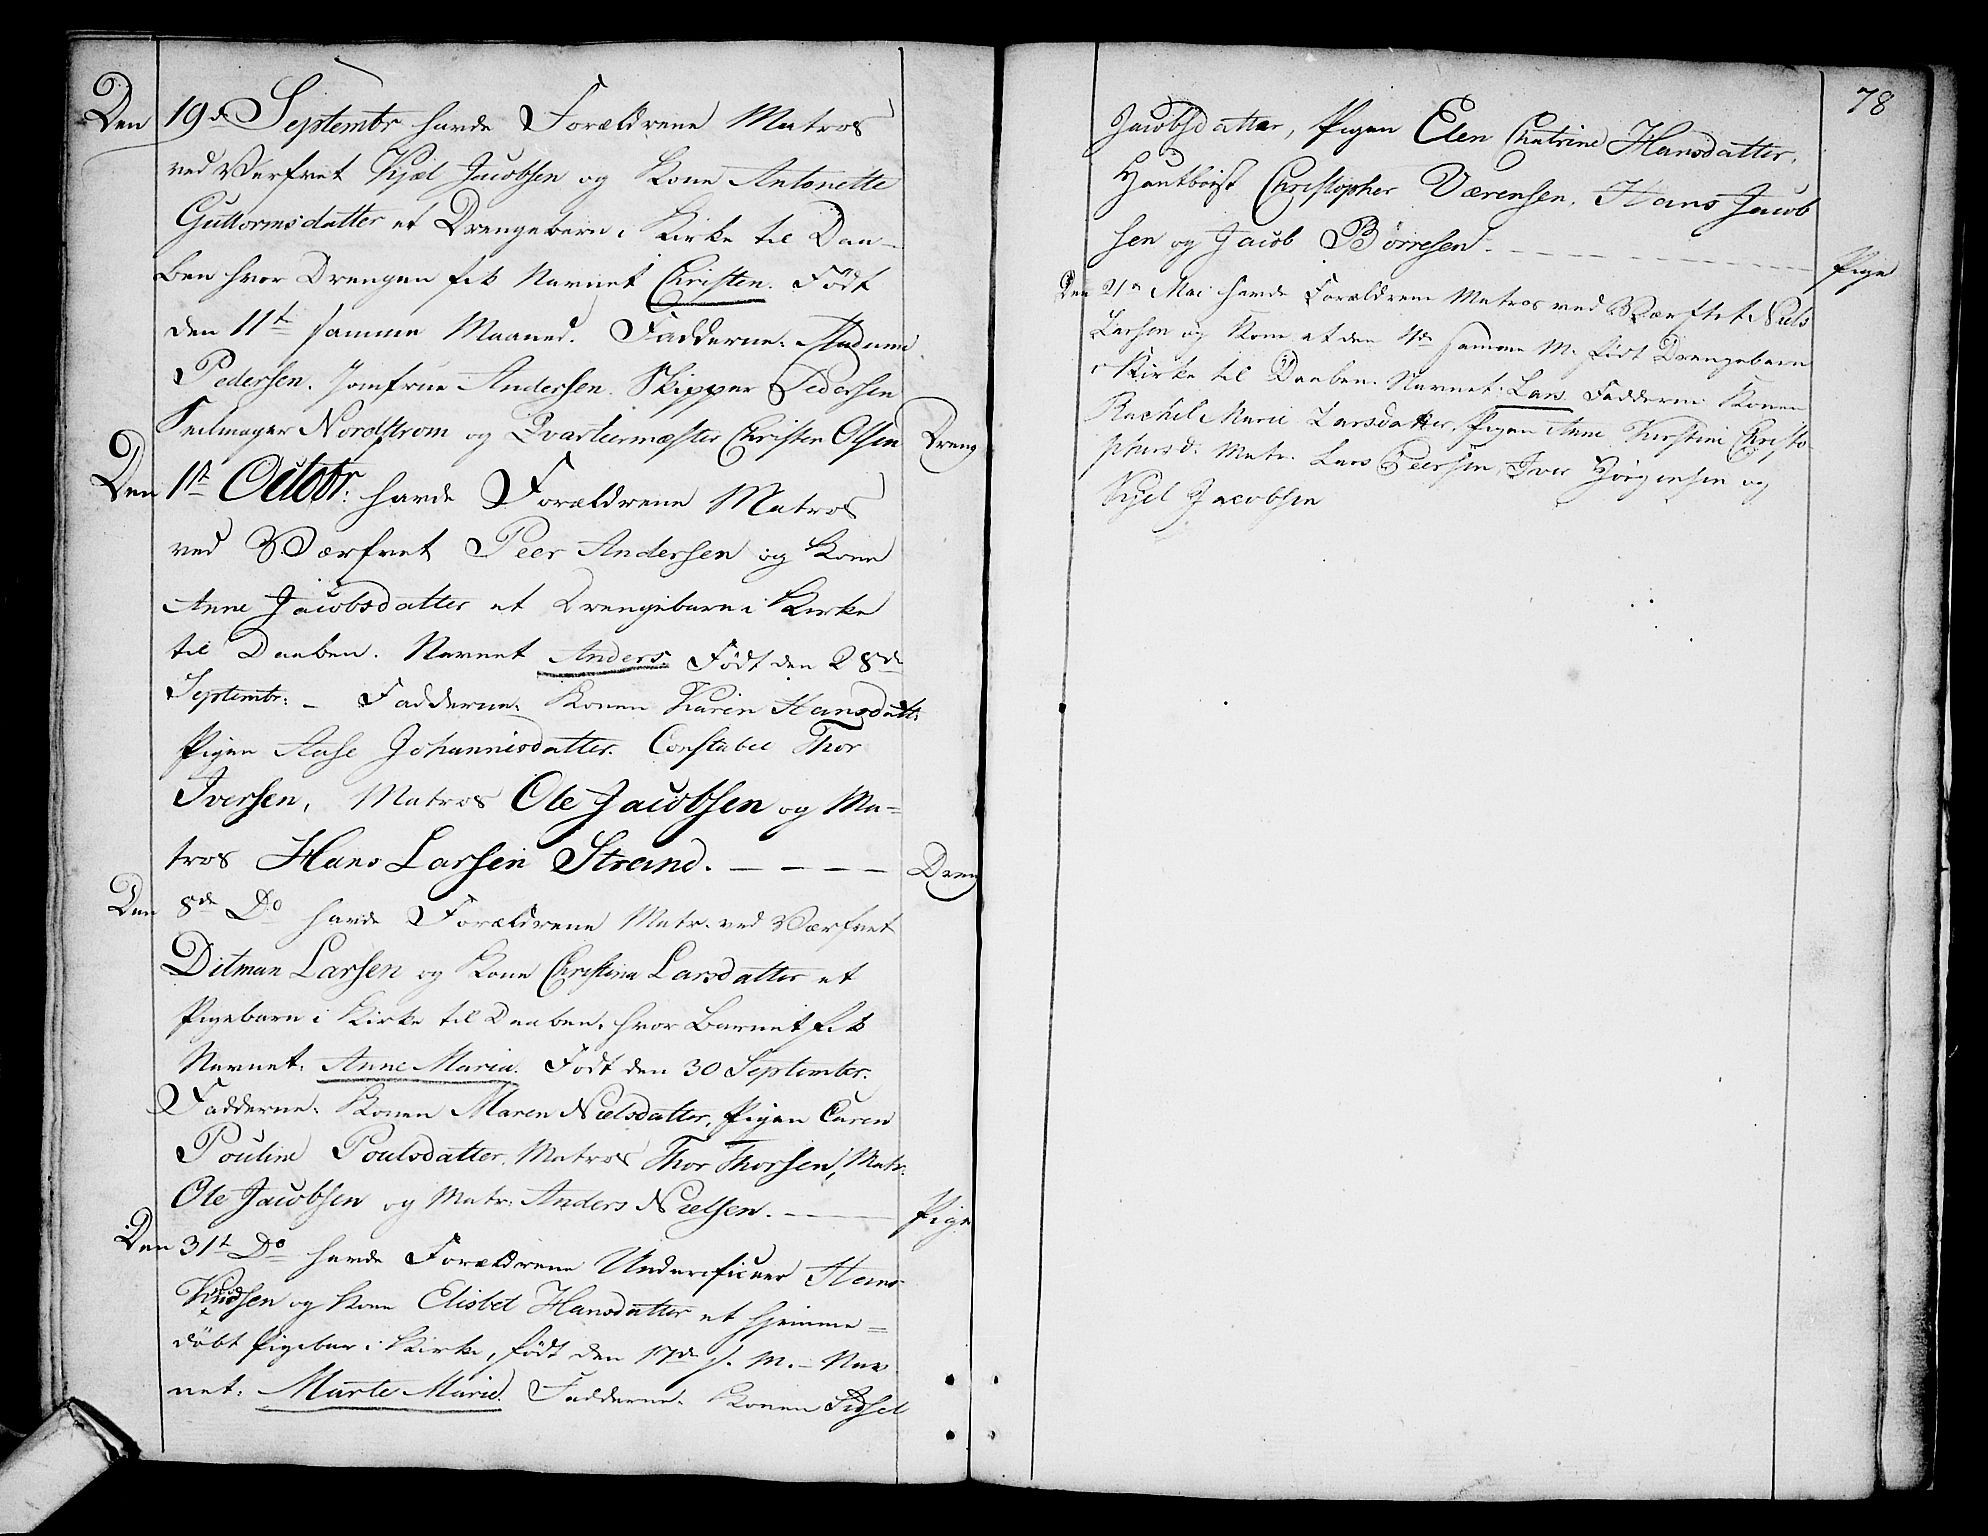 Den 19d Septembr havde Forældrene Matros
ved Værfvet Kjæl Jacobsen og Kone Antonette
Guttormsdatter et Drengebarn i Kirke til Daa-
ben hvor Drengen fik Navnet Christen. Födt
den 11t samme Maaned. Fadderne: Madame
Pedersen. Jomfrue Andersen. Skipper Pedersen
Seilmager Nordstrøm og Qvarteermester Christen Olsen Dreng
Den 1t Octobr: havde Forældrene Matros
ved Værfvet Peer Andersen og Kone
Anne Jacobsdatter et Drengebarn i Kirke
til Daaben. Navnet Anders. Födt den 28de
Septembr: - Fadderne: Konen Karen Hansdatt:
Pigen Aase Johannisdatter. Constabel Thor
Iversen, Matros Ole Jacobsen og Ma=
tros Hans Larsen Strand. - - - - Dreng
Den 8de Do havde Forældrene Matr. ved Værfvet
Ditman Larsen og Kone Christina Larsdatter et
Pigebarn i Kirke til Daaben, hvor Barnet fik
Navnet: Anne Maria. Födt den 30 September.
Fadderne: Konen Maren Nielsdatter, Pigen Caren
Pouline Poulsdatter, Matros Thor Thorsen, Matr:
Ole Jacobsen og Matr: Anders Nielsen. - - Pige
Den 31t Do havde Forældrene Underoficeer Hans
Knudsen og Kone Elisbet Hansdatter et hjemme=
döbt Pigebar i Kirke, födt den 17de s. M. - Nav
net: Marte Marie. Fadderne: Konen Sidsel
78
Jacobsdatter, Pigen Elen Chatrine Hansdatter,
Hautboist Christopher Værensen, Hans Jacob
sen og Jacob Börresen - - - Pige
Den 21n Mai havde Forældrene Matros ved Værftet Niels
Larsen og Kone et den 4de samme M. födt Drengebarn
i Kirke til Daaben. Navnet: Lars. Fadderne: Konen
Rachel Marie Larsdatter, Pigen Anne Kirstine Christo
phersd: Matr. Lars Peersen, Iver Jörgensen og
Kjel Jacobsen